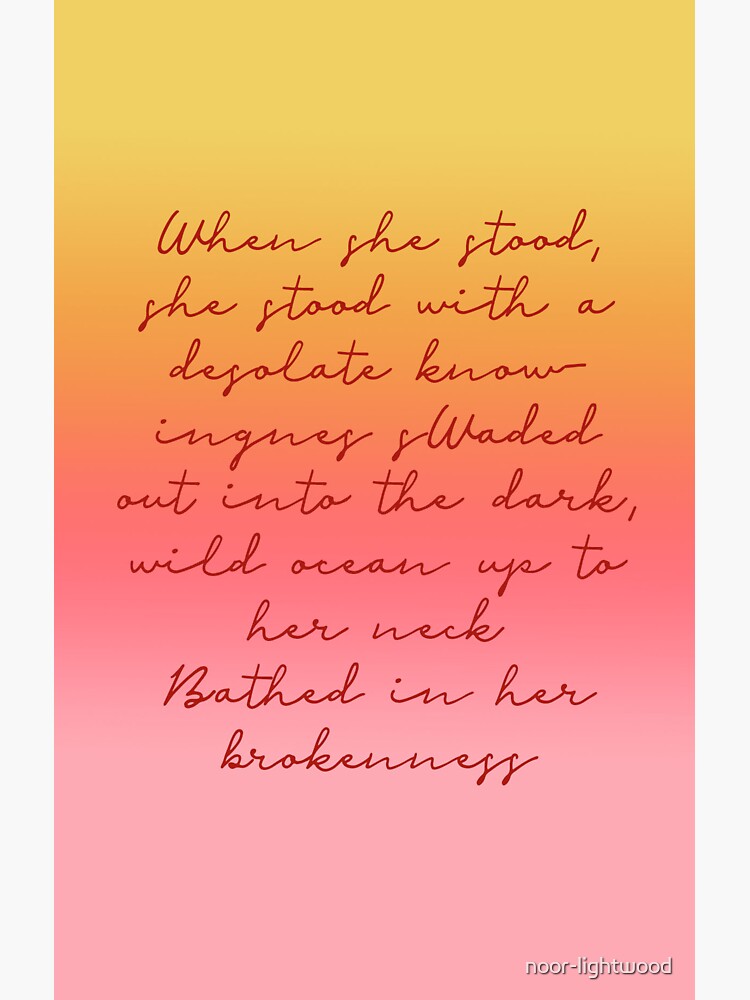 When she stood,
she stood with a
desolate know-
ingnes sWaded
out into the dark,
wild ocean up to
her neck
Bathed in her
brokenness
noor-lightwood